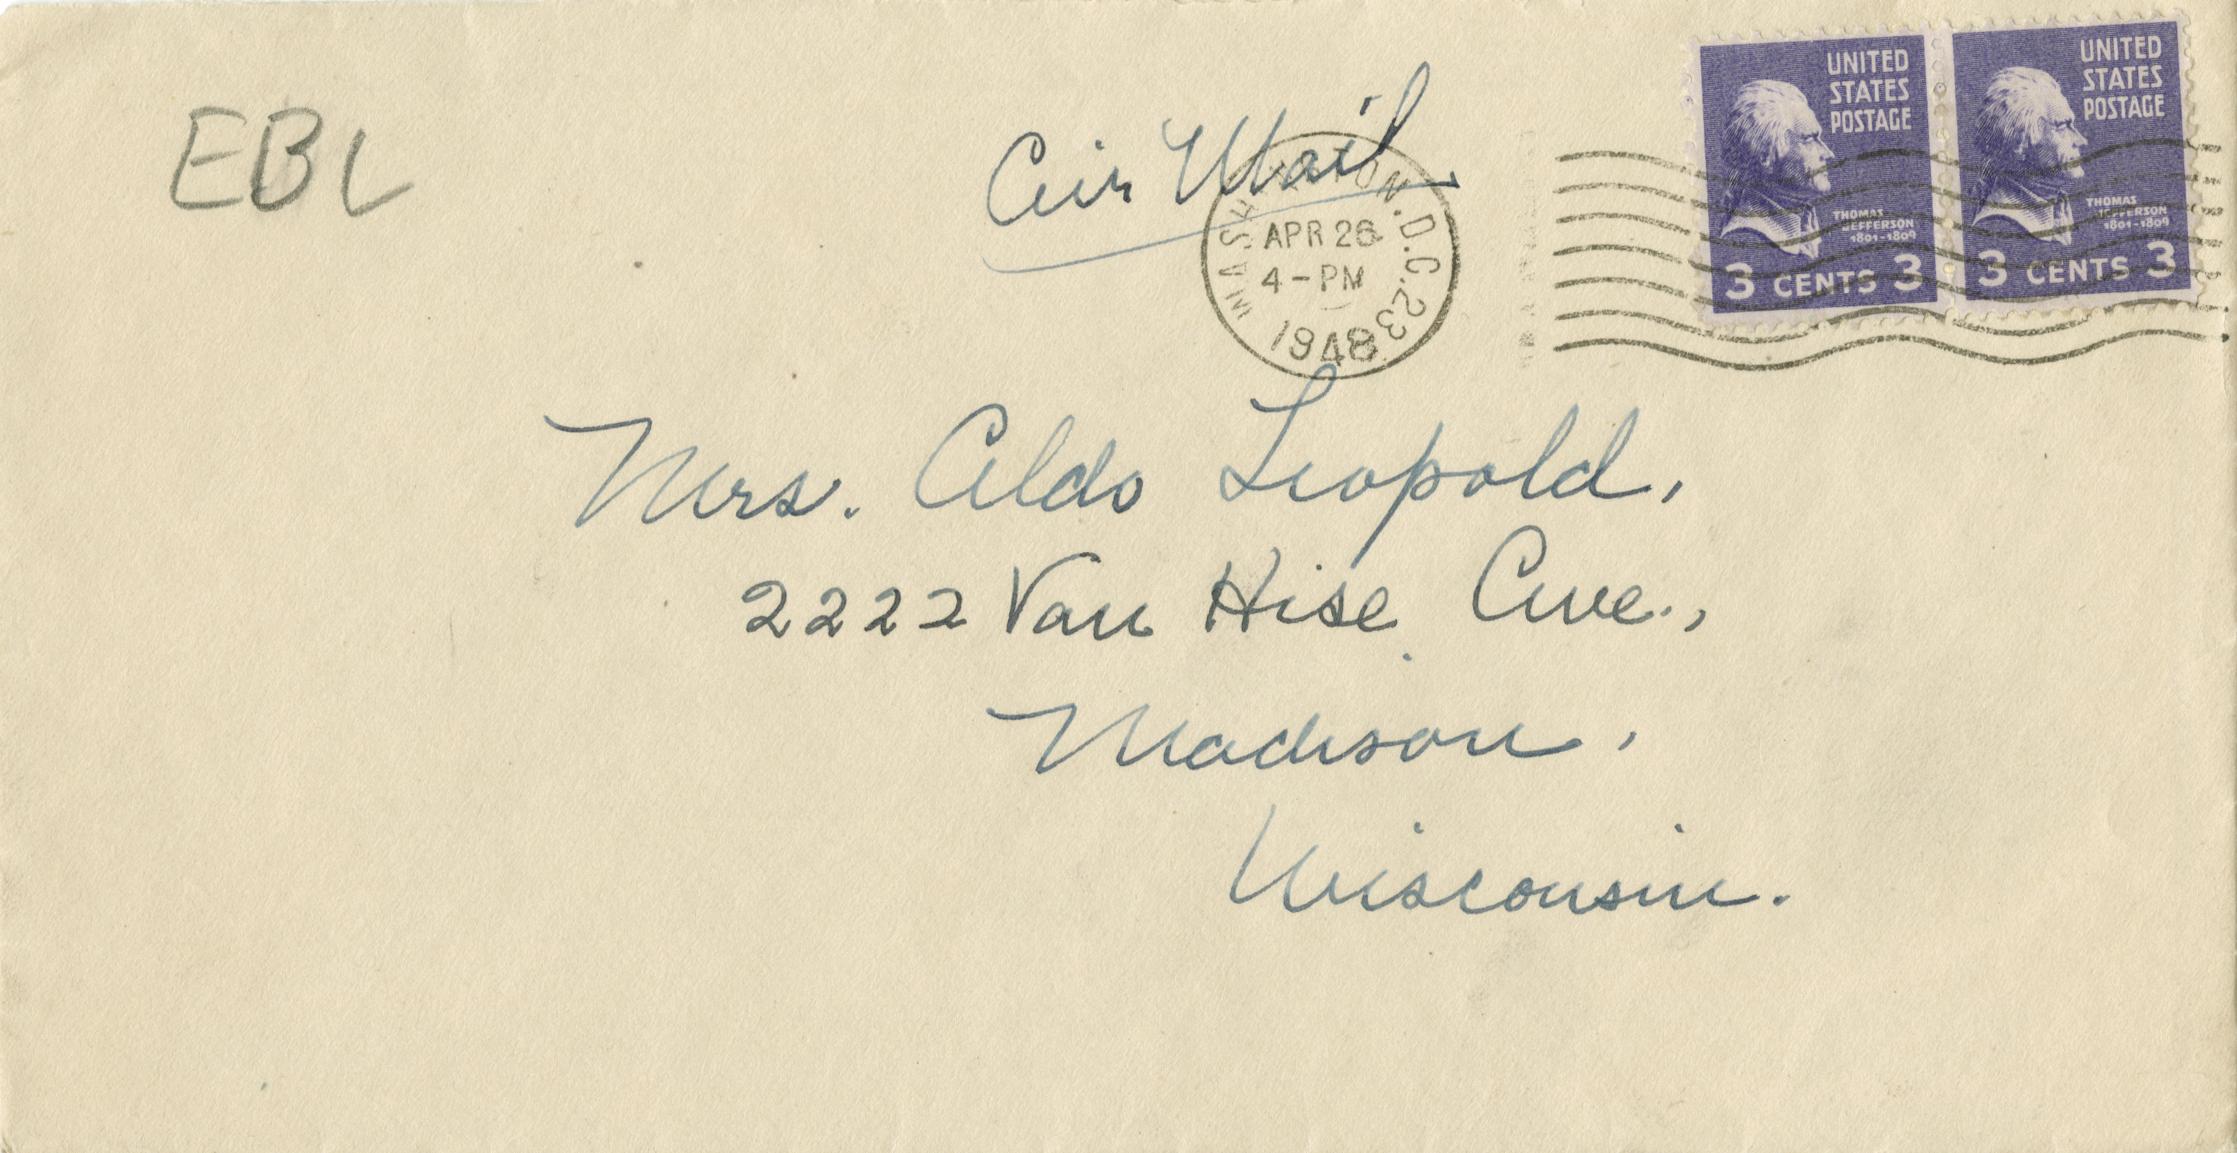 EBL
Air Mail
WASHINGTON, D.C. 23
APR 26
4-PM
1948
UNITED
STATES
POSTAGE
THOMAS
JEFFERSON
1801-1809
3 CENTS 3
UNITED
STATES
POSTAGE
THOMAS
JEFFERSON
1801-1809
3 CENTS 3
Mrs. Aldo Leopold,
2222 Van Hise Ave.,
Madison,
Wisconsin.